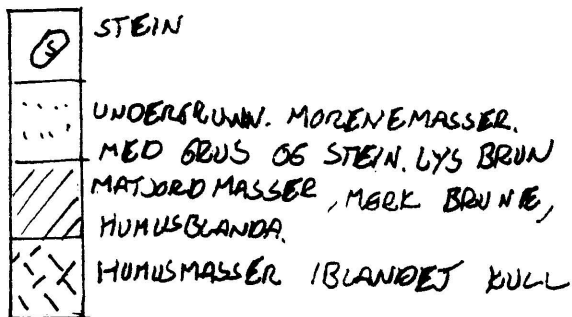 STEIN
S
UNDERGRUNN. MORENEMASSER.
MED GRUS OG STEIN. LYS BRUN
MATJORDMASSER, MØRK BRUNE,
HUMUSBLANDA.
HUMUSMASSER IBLANDET KULL